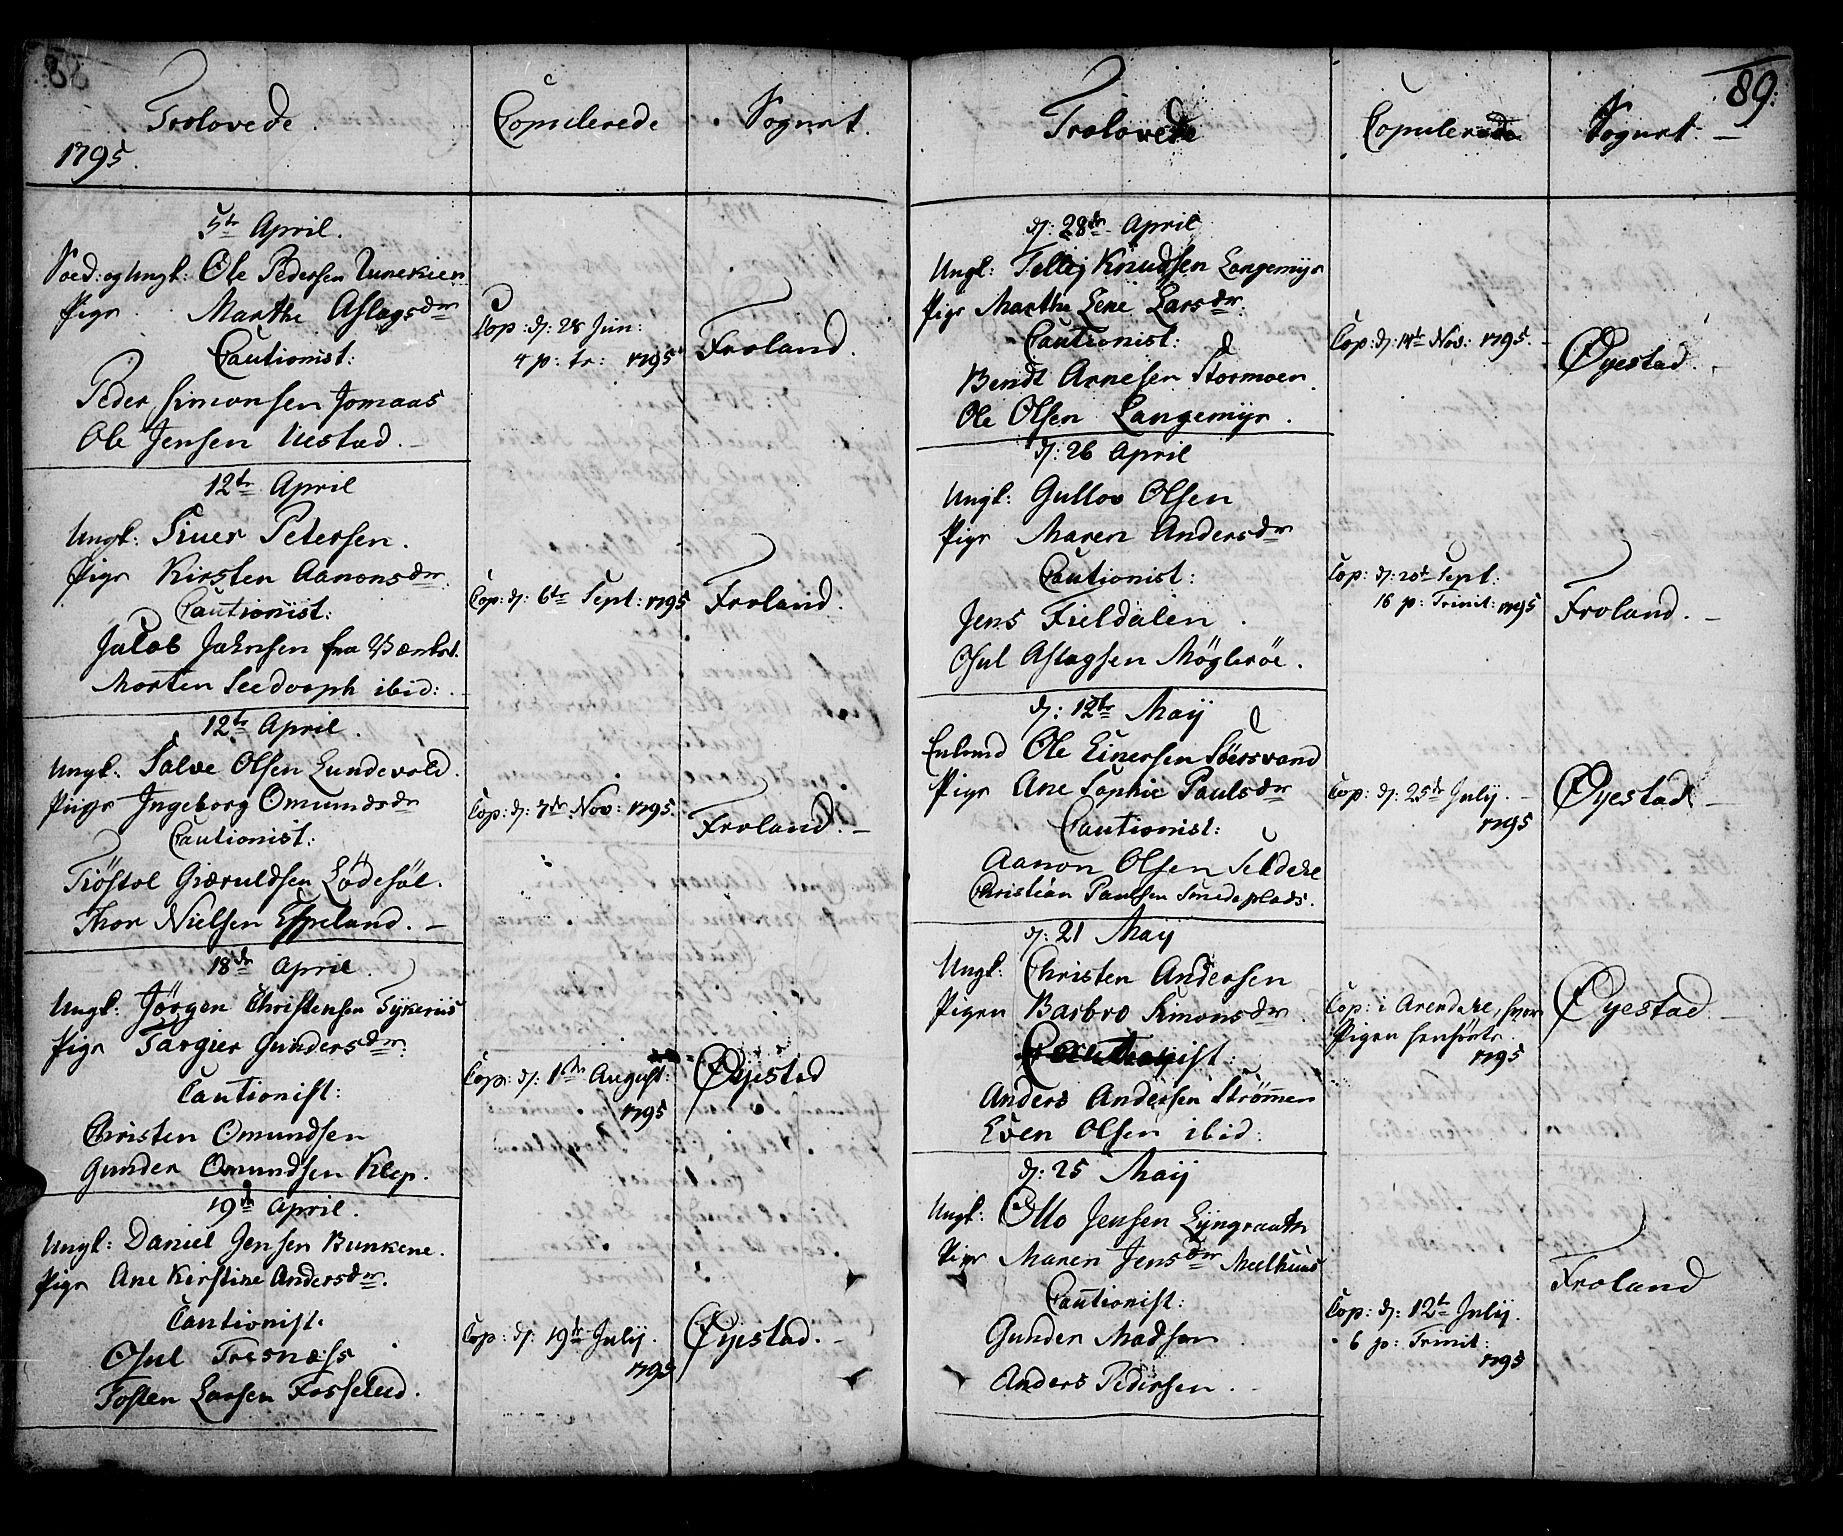 88
Trolovede.
Copulerede
Sognet.
1795.
5te April.
Soed: og Ungk: Ole Pedersen
Pige Marthe Aslagsdr
Cautionist:
Peder Simonsen Jomaas
Ole Jensen
Cop: d: 28 Jun:
4 p: tr: 1795
Froland.
12te April
Ungk: Siver Petersen.
Pige Kirsten Aanonsdr.
Cautionist:
Jacob Jahnsen fra
Morten Seedorph ibid:
Cop: d: 6te Sept: 1795
Froland.
12te April.
Ungk: Salve Olsen Lundevold.
Pige Ingeborg Omundsdr
Cautionist:
Tiöstol Gieruldsen Lödesöl.
Thor Nielsen Espeland.
Cop: d: 7de Nov: 1795.
Froland.
18de April.
Ungk: Jörgen Christensen
Pige Targier Gundersdr:
Cautionist:
Christen Omundsen
Gunder Omundsen Klep.
Cop: d: 1ste August:
1795
Øyestad
19de April.
Ungk: Daniel Jensen Bunkene.
Pige Ane Kirstine Andersdr.
Cautionist.
Osul Tresnæss
Tosten Larsen
Cop: d: 19de July.
1795
Øyestad.
89.
Trolovede
Copulerede
Sognet.
d: 28de April
Ungk: Tellej Knudsen Langemyr
Pige Marthe Lene Larsdr.
Cautionist:
Bendt Arnesen Stormoen.
Ole Olsen Langemyr.
Cop: d: 14de Nov: 1795.
Øyestad.
d: 26 April
Ungk: Gullov Olsen
Pige Maren Andersdr
Cautionist:
Jens Fieldalen
Osul Aslagsen Mögleröe.
Cop: d: 20de Sept:
16 p: Trinit: 1795
Froland.
d: 12te Maij
Enkmd Ole Einersen Söersvand
Pige Ane Sophie Paulsdr
Cautionist:
Aanon Olsen
Christian Paulsen Smedeplads.
Cop: d: 25de July.
1795
Øyestad
d: 21 Maij
Ungk: Christen Andersen
Pigen Barbro Simonsdr
Cautionist:
Anders Andersen Strömmen
Even Olsen ibid:
Cop: i Arendahl, hvor
Pigen henhörte.
1795
Øyestad
d: 25 Maij
Ungk: Otto Jensen Lyngraath
Pige Maren Jensdr Meelhuus
Cautionist:
Gunder Madsen
Anders Pedersen.
Cop: d: 12te July.
6 p: Trinit:
1795
Froland